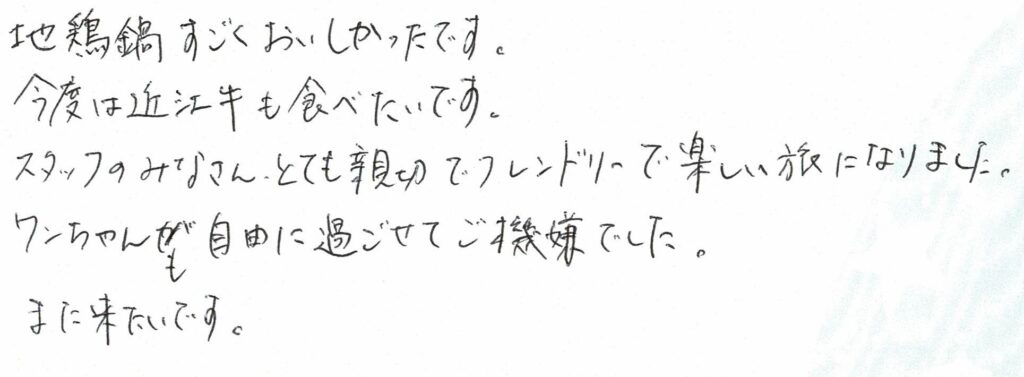 地鶏鍋すごくおいしかったです。
今度は近江牛も食べたいです。
スタッフのみなさん、とても親切でフレンドリーで楽しい旅になりました。
ワンちゃんが自由に過ごせてご機嫌でした。
も
また来たいです。